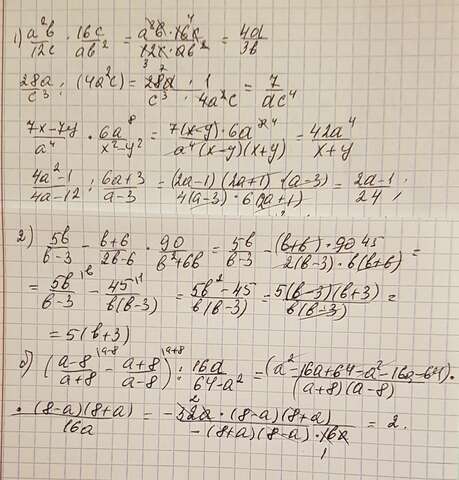 1) a²b/12c · 16c/ab² = a²b·16c/12c·ab² = 4a/3b
28a/c³ : (4a²c) = 28a · 1/c³ · 4a²c = 7/ac⁴
7x-7y/a⁴ · 6a⁸/x²-y² = 7(x-y)·6a⁸/a⁴(x-y)(x+y) = 42a⁴/x+y
4a²-1/4a-12 : 6a+3/a-3 = (2a-1)(2a+1)·(a-3)/4(a-3)·6(2a+1) = 2a-1/24;
2) 5b/b-3 - b+6/2b-6 · 90/b²+6b = 5b/b-3 - (b+6)·90 45/2(b-3)·b(b+6) =
= 5b/b-3 \b - 45/b(b-3) \1 = 5b²-45/b(b-3) = 5(b-3)(b+3)/b(b-3) =
= 5(b+3)
б) (a-8/a+8 \a-8 - a+8/a-8 \a+8) : 16a/64-a² = (a²-16a+64-a²-16a-64)·/(a+8)(a-8)
· (8-a)(8+a)/16a = -32a·(8-a)(8+a)/-(8+a)(8-a)·16a = 2.